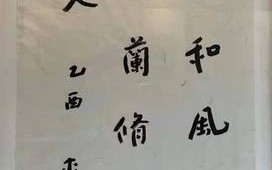 和風
蘭脩
乙酉